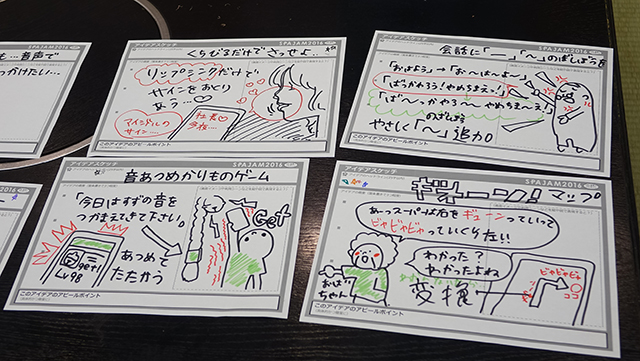 も…音声で
つかけたい…
アイデアスケッチ
SPAJAM2016
くちびるだけでさっせよ…
リップシンクだけで
サインをおとり
あう…♡
マインドルの
サイン…
社者♡
今夜…
SPAJAM2016
会話に「ー」「〜」のばしぼうを
「おはよう」→「お〜は〜よ〜」
「ばっかやろう!やめちまえ!」
「ば〜っかやろ〜〜やめちまえ〜!」
のばしぼう
やさしく「〜」追加。
アイデアスケッチ
SPAJAM2016
音あつめかりものゲーム
「今日はすずの音を
つかまえてきて下さい。
Get
get!
Lv98
あつめて
たたかう
このアイデアのアピールポイント
アイデアスケッチ
SPAJAM2016
ギューーン!マップ
あースーパーは右をギューンっていって
ビャビャビャっていくり左!!
わかった?
わかったよね
おばちゃん
変換
ビャビャビャ
ココ
このアイデアのアピールポイント